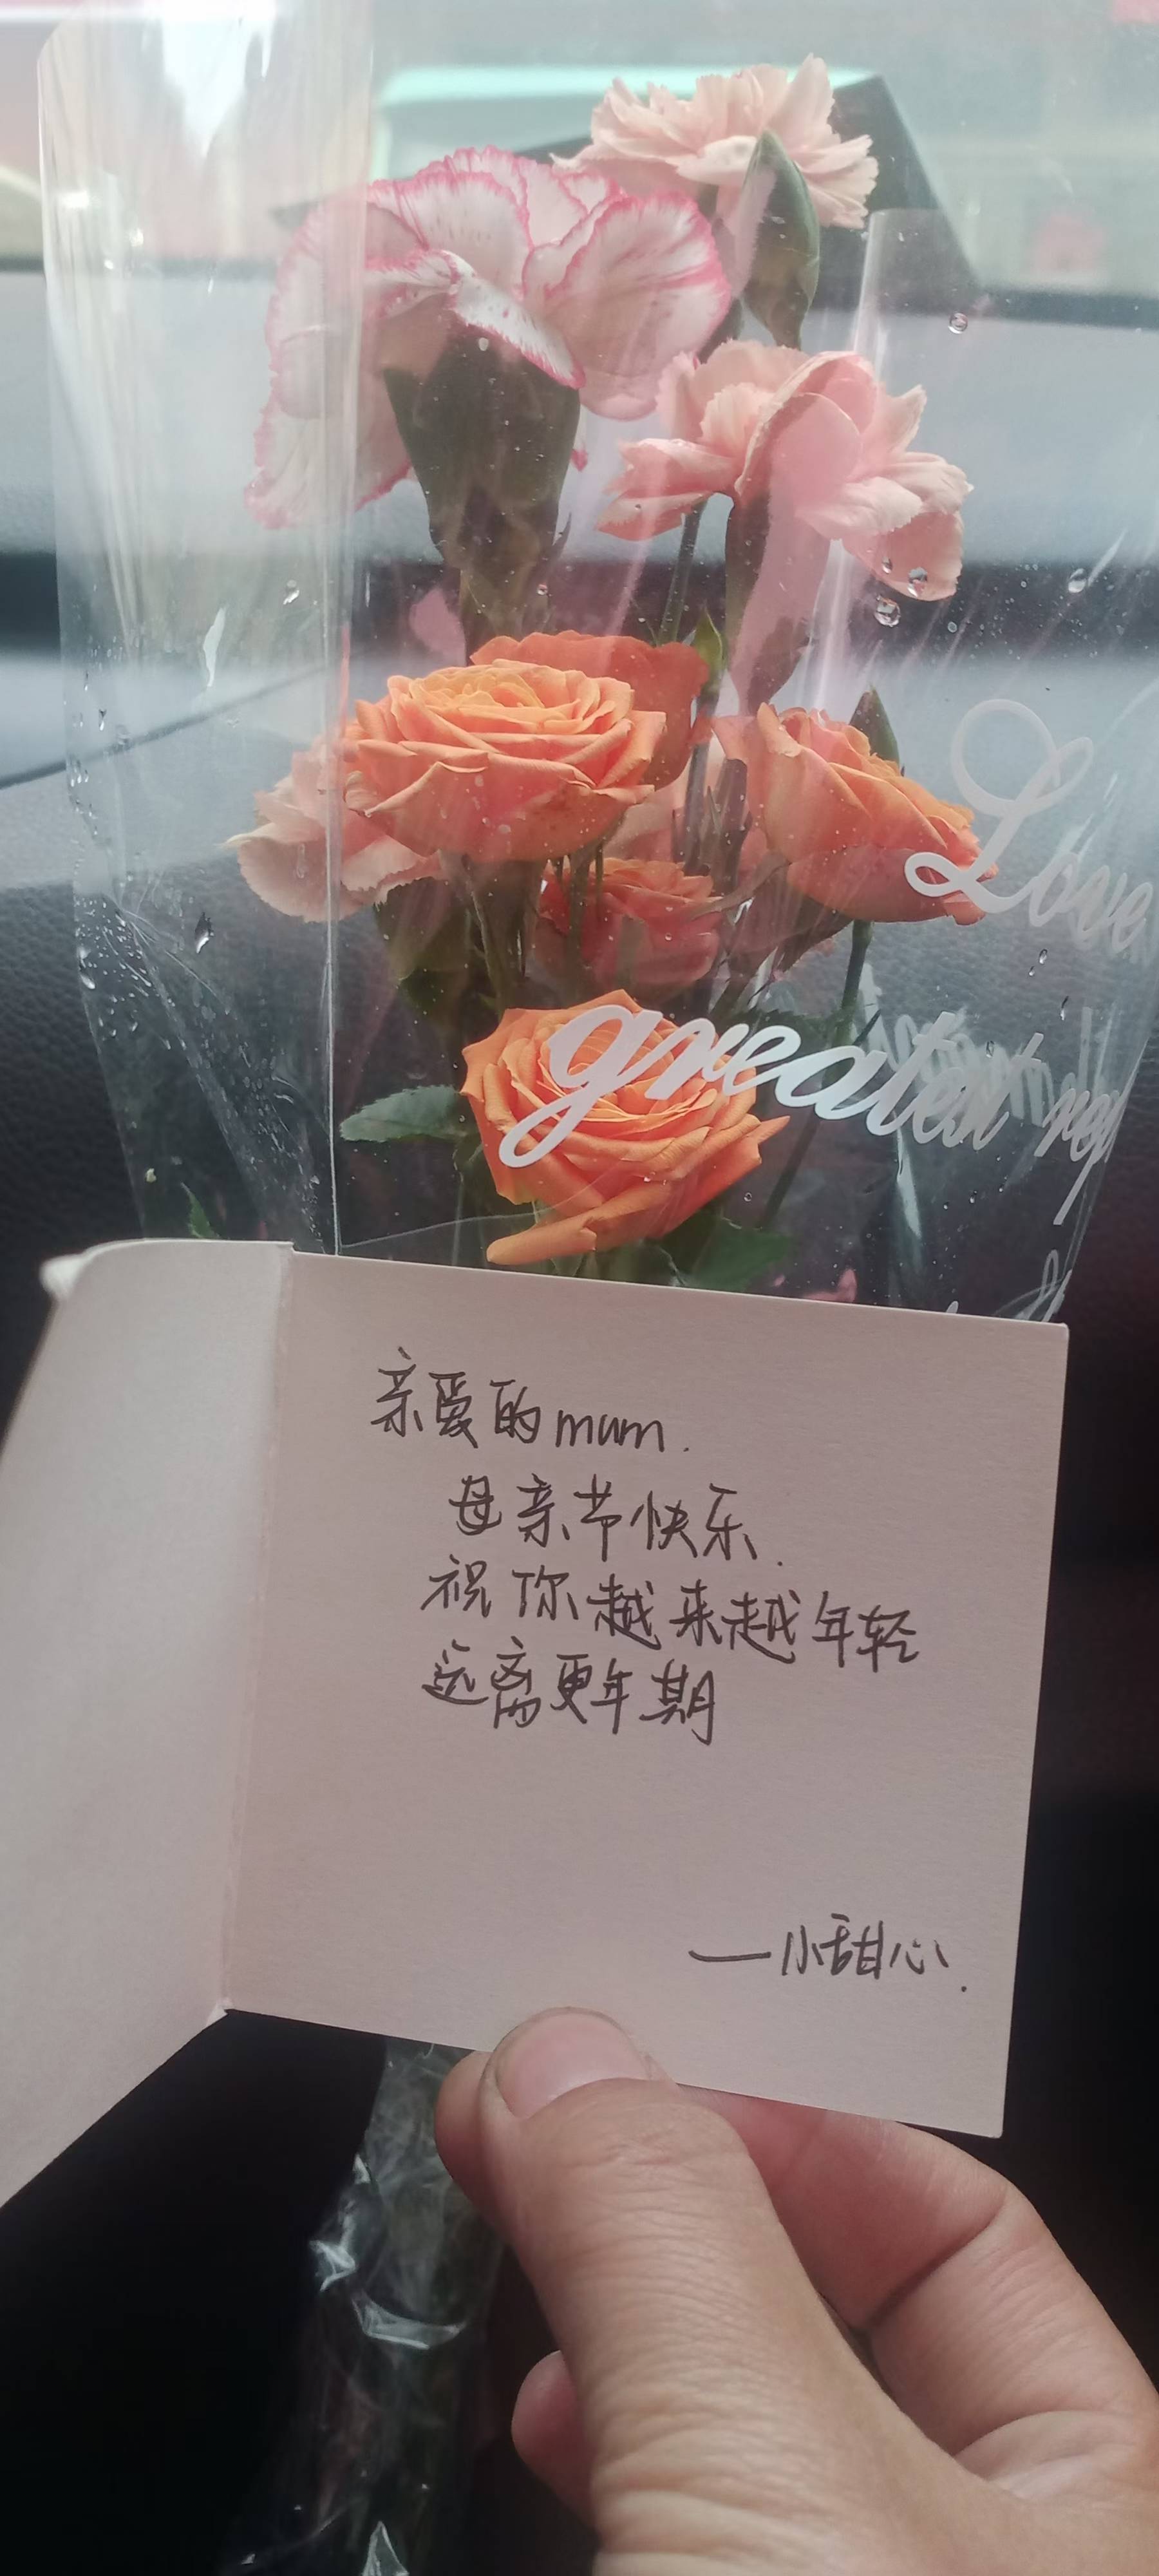 Love
greatest
亲爱的mum.
母亲节快乐.
祝你越来越年轻
远离更年期
——小甜心.